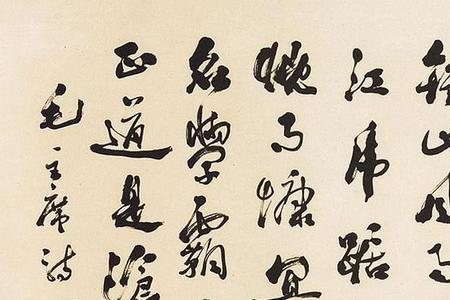 鍾山風雨
江虎踞
慨而慷宜
名學霸
正道是滄
毛主席詩